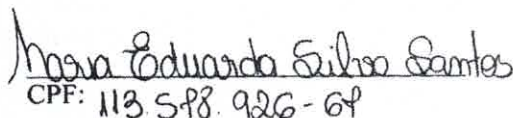 Maria Eduarda Silva Santos
CPF: 113.598.926-69